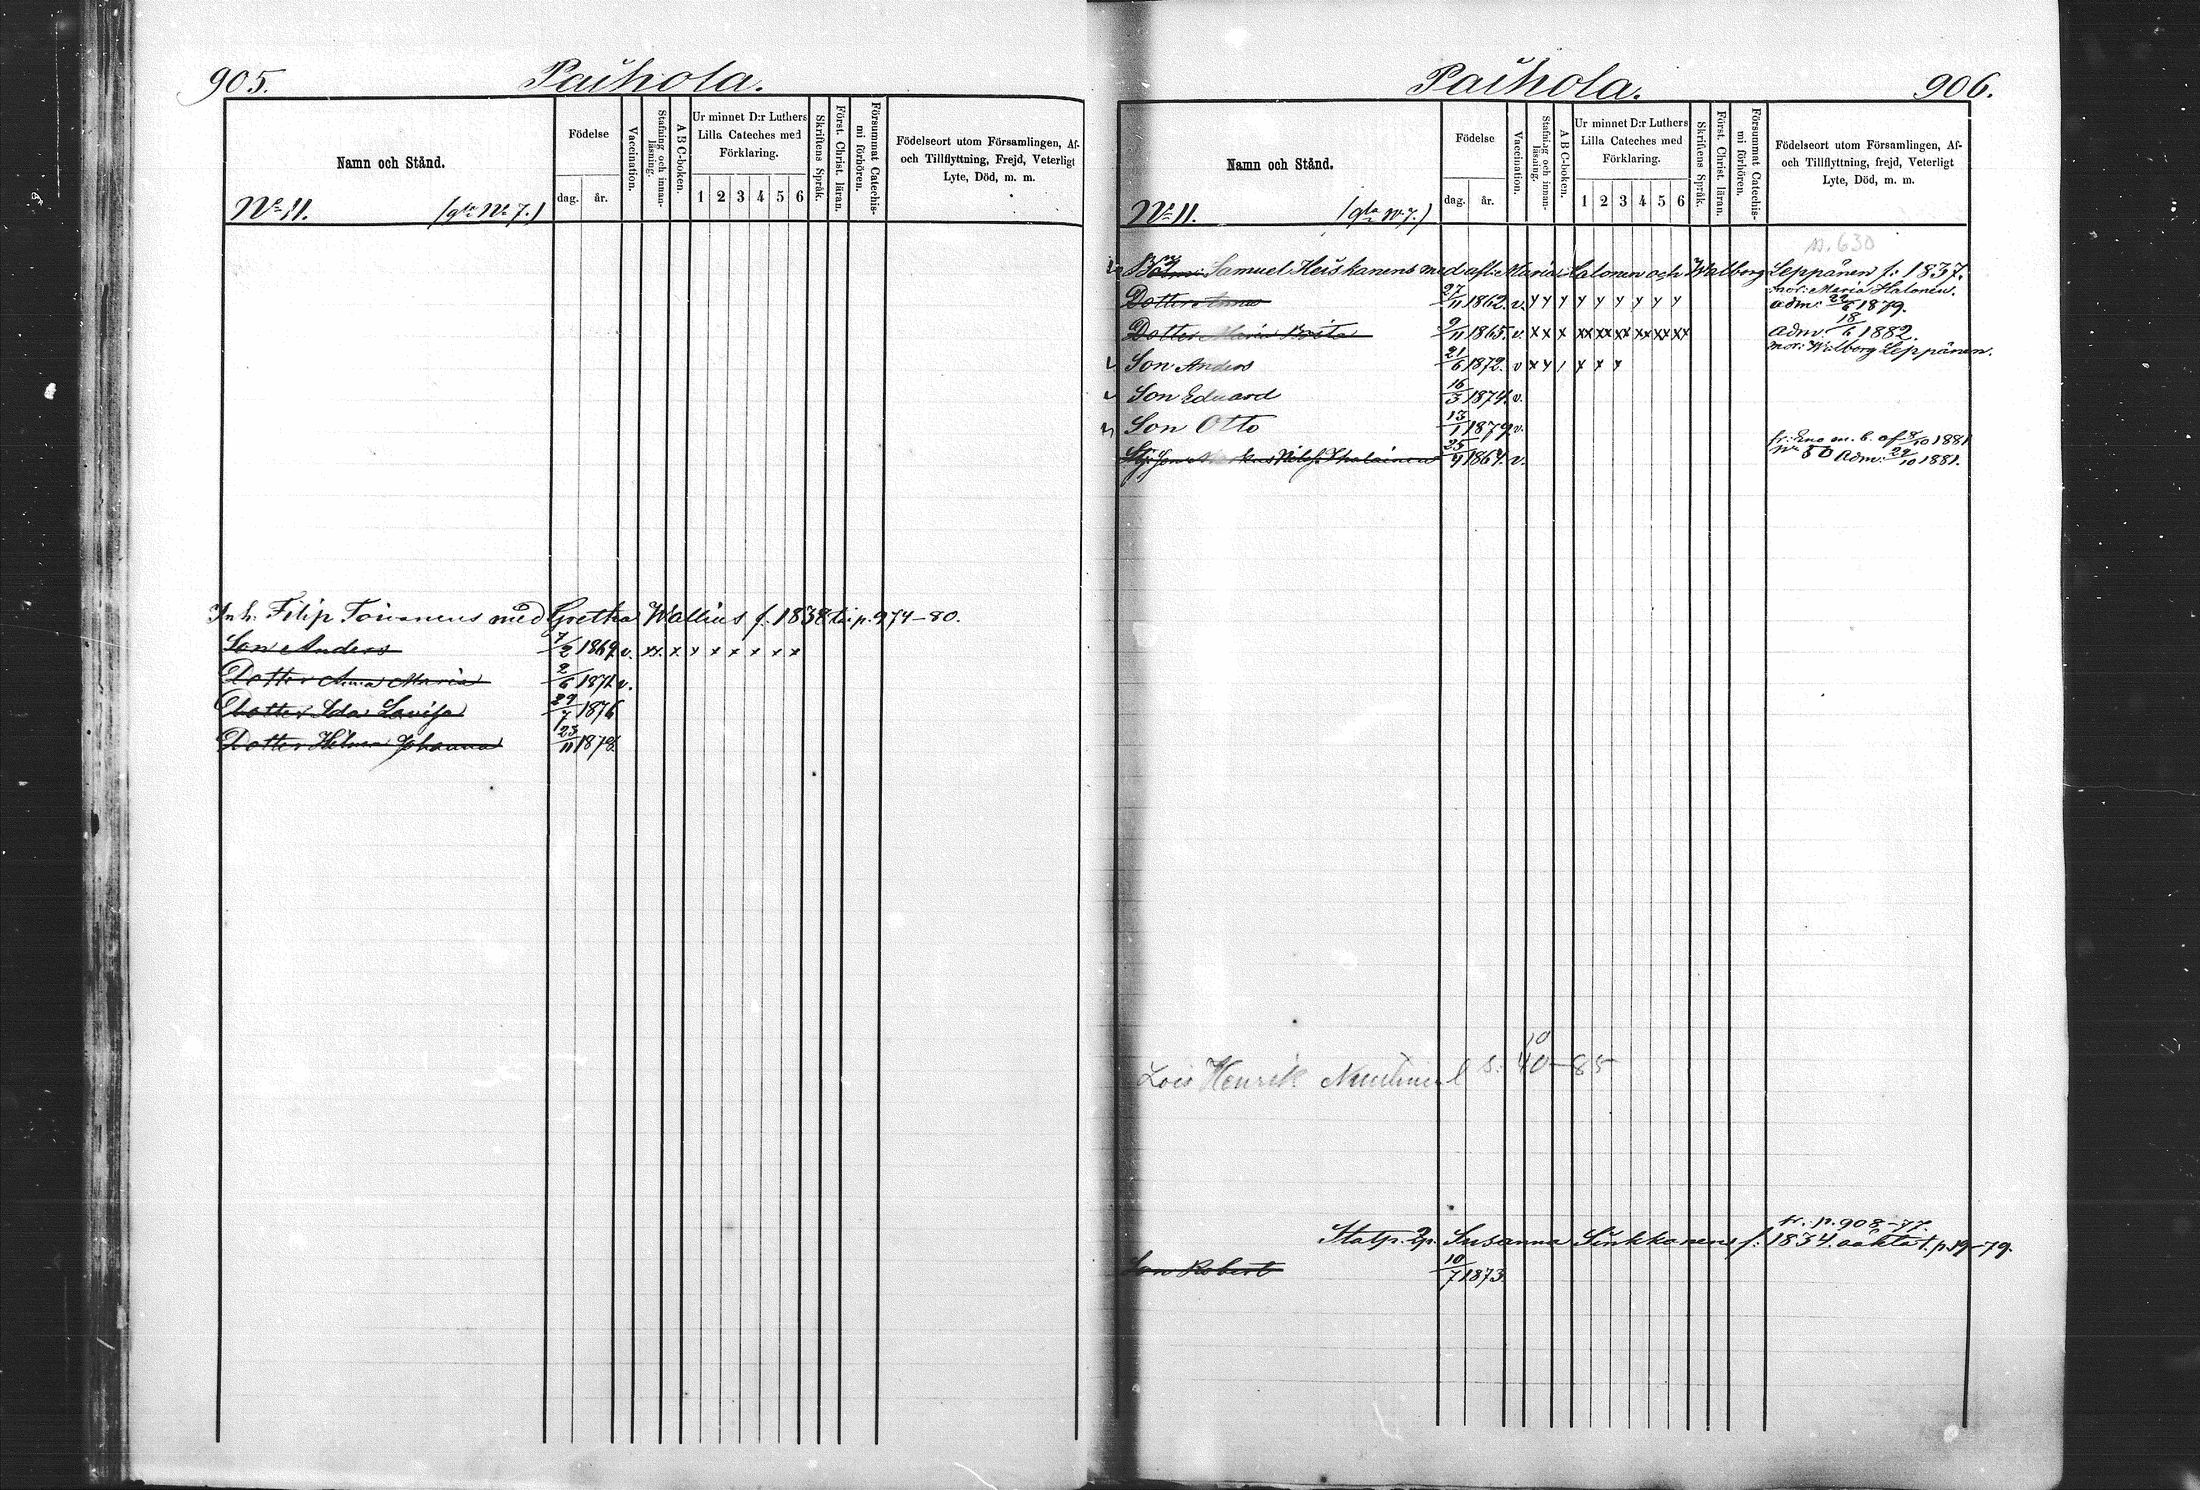 905.
Paihola.
Namn och Stånd.
Födelse
dag.
år.
Vaccination.
Stafning och innan-
läsning.
A B C-boken.
Ur minnet D:r Luthers
Lilla Cateches med
Förklaring.
1 2 3 4 5 6
Skriftens Språk.
Först. Christ. läran.
Försummat Catechis-
mi förhören.
Födelseort utom Församlingen, Af-
och Tillflyttning, Frejd, Veterligt
Lyte, Död, m. m.
No 11.
(gla No 7.)
Inh. Filip Toivanens med Gretha Wallius f. 1838 p. 974-80.
Son Anders 7/2 1869 v. xx. x x x x x x x
Dotter Anna Maria 2/6 1871 v.
Dotter Ida Lovisa 29/7 1876
Dotter Helma Johanna 23/11 1878.
Paihola.
906.
Namn och Stånd.
Födelse
dag.
år.
Vaccination.
Stafning och innan-
läsning.
A B C-boken.
Ur minnet D:r Luthers
Lilla Cateches med
Förklaring.
1 2 3 4 5 6
Skriftens Språk.
Först. Christ. läran.
Försummat Catechis-
mi förhören.
Födelseort utom Församlingen, Af-
och Tillflyttning, frejd, Veterligt
Lyte, Död, m. m.
No 11.
(gla No 7.)
s. 630
Samuel Heiskanens med afl: Maria Halonen och Walborg Leppänen f: 1837.
mor: Maria Halonen.
Dotter Anna 27/11 1862. v. x x x x x x x x x adm: 22/6 1879.
Dotter Maria Brita 9/11 1865. v. x x x xx xx xx xx xx xx adm. 18/6 1882.
mor: Walborg Leppänen.
Son Anders 21/6 1872. v x x 1 x x x
Son Eduard 16/3 1874. v.
Son Otto 13/1 1879. v.
fr: Eno m. b. af 8/10 1881
Stj: Son Markus Nilsf. Ihalainen 25/4 1864. v. No 50 Adm: 22/10 1881.
Lois Henrik s: 40-85
10
fr. p. 908-77.
Statp. Susanna Sinkkonens f: 1834. oäkta t. p. 19-79.
Son Robert 10/7 1873.